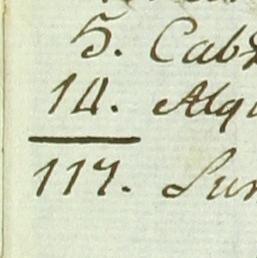 5. Cab
14. Alg
117. Su